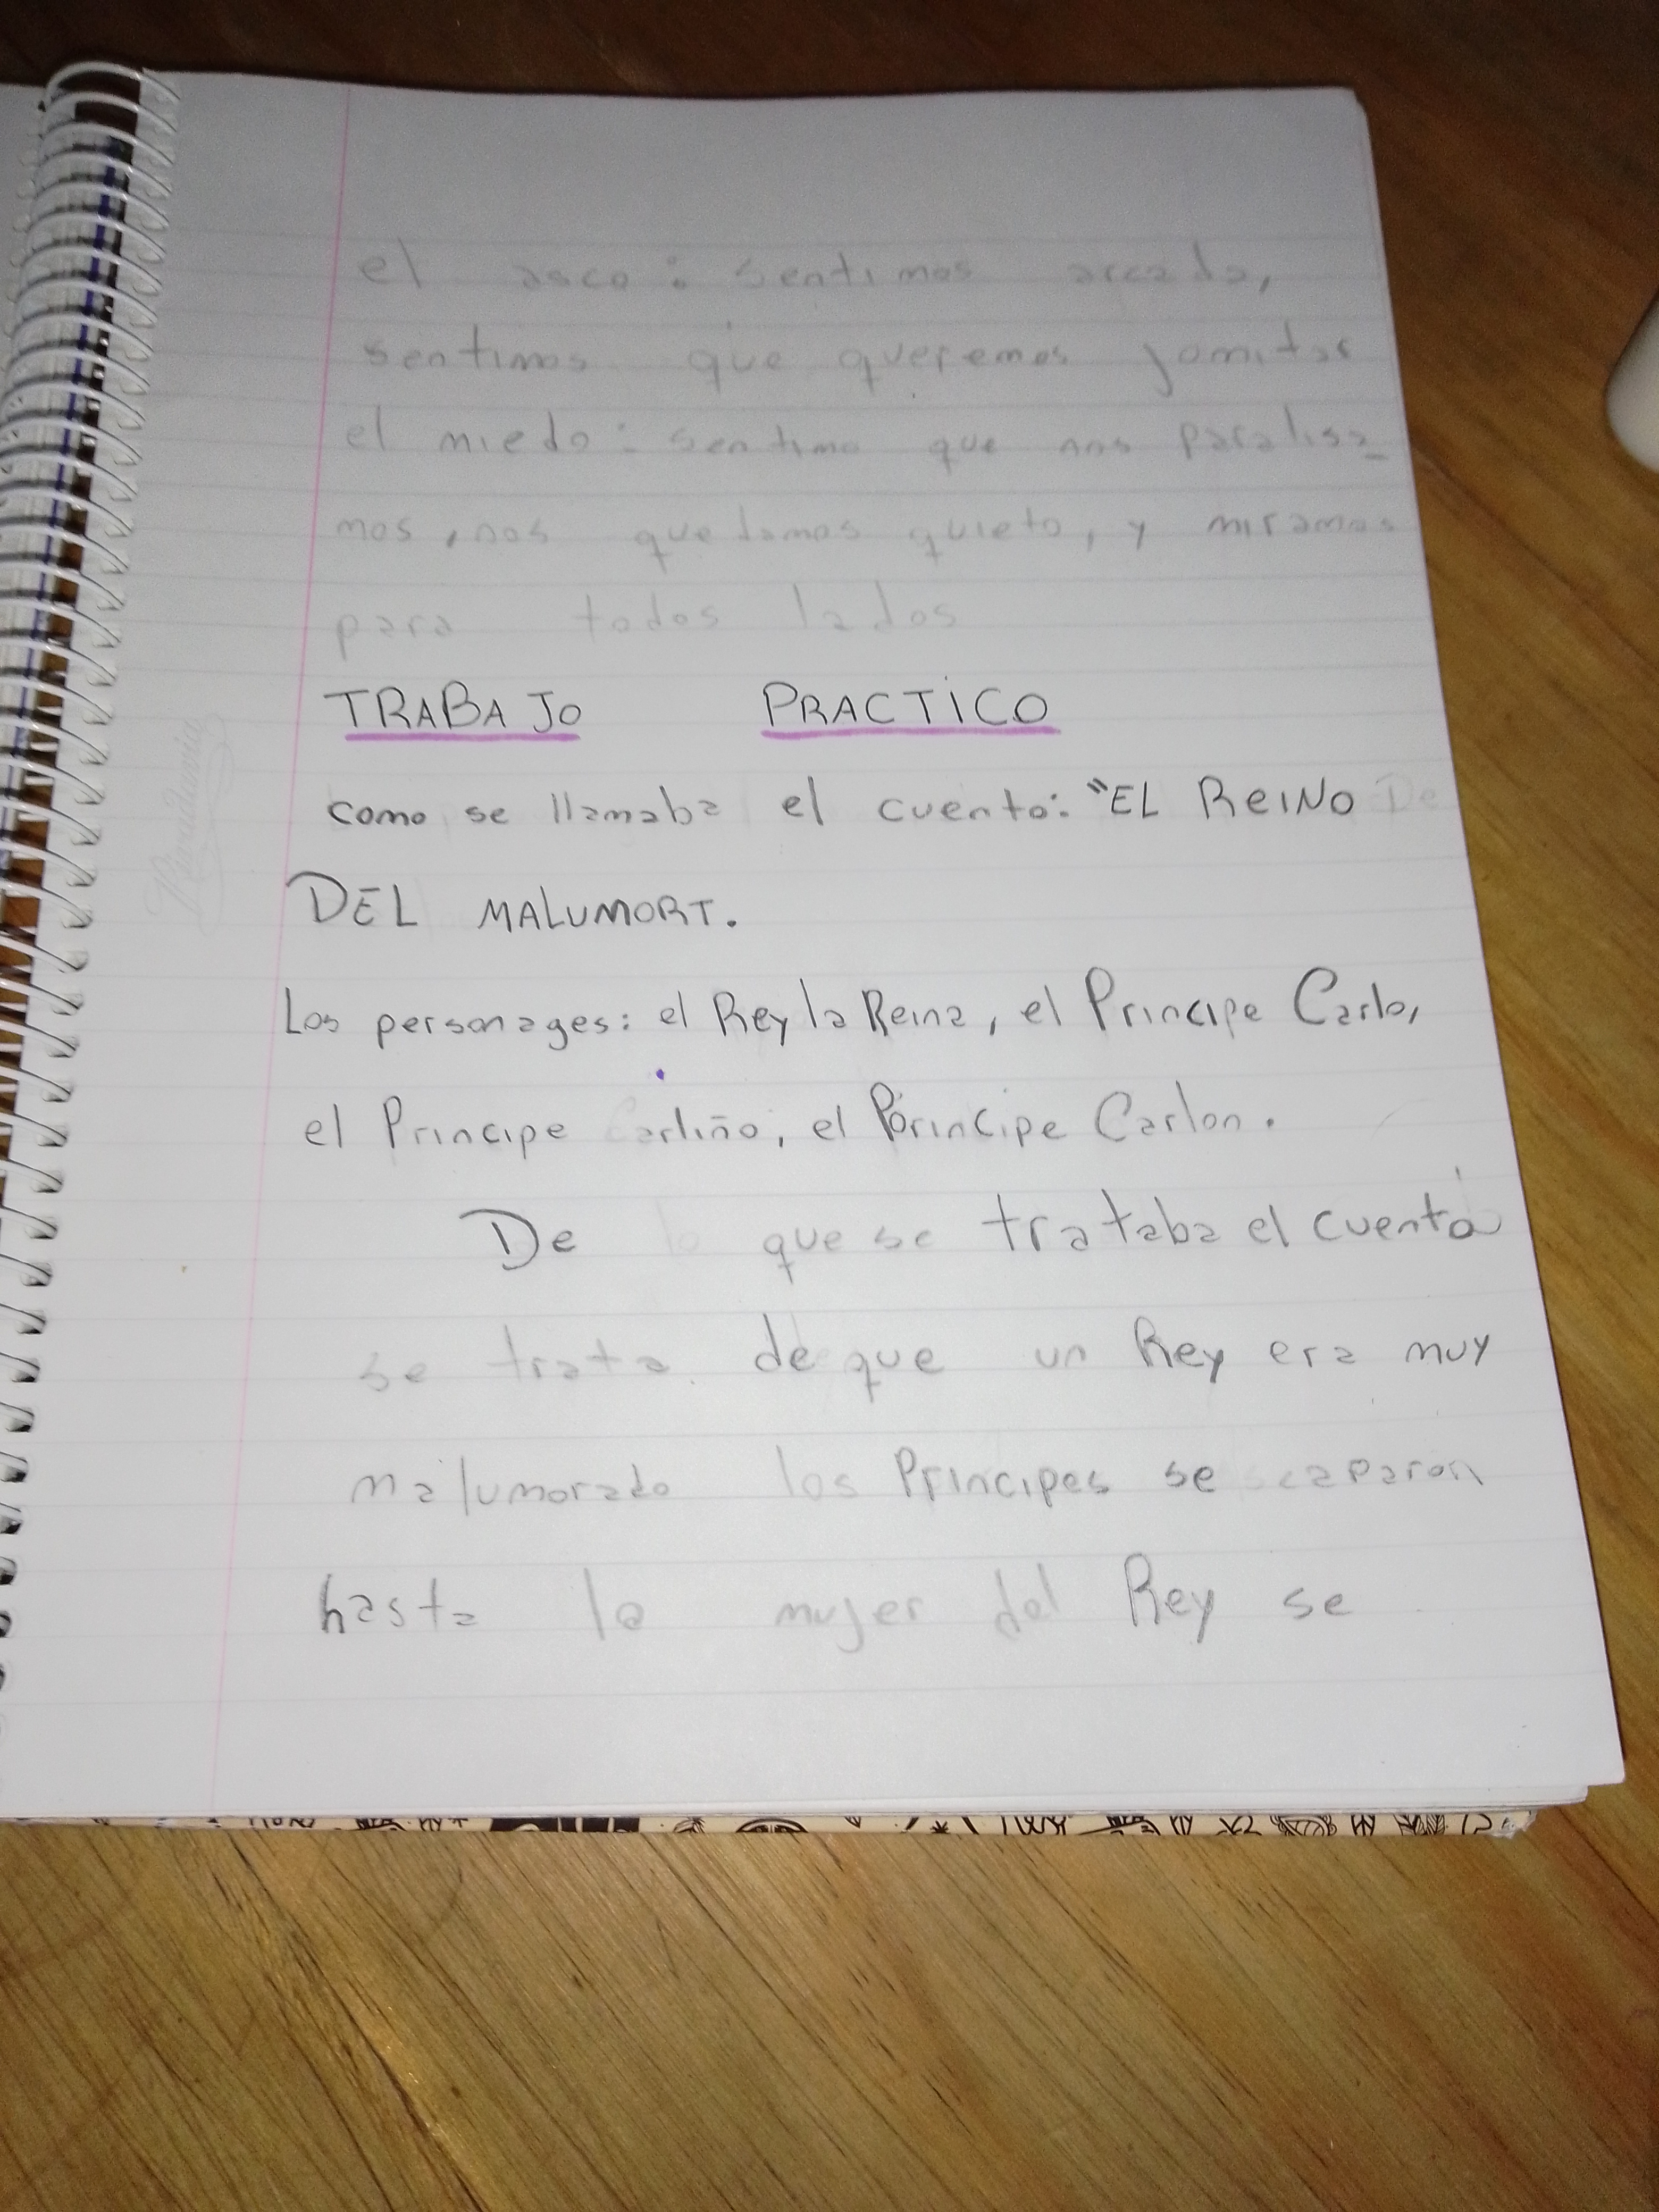 el asco: sentimos arcada,
sentimos que queremos jomitar
el miedo: sentimo que nos paralisa_
mos, nos quedamos quieto, y miramos
para todos lados
TRABAJO PRACTICO
como se llamaba el cuento: "EL REINO De
DEL MALUMORT.
Los personages: el Rey la Reina, el Principe Carlo,
el Principe Carliño, el Porincipe Carlon.
De lo que se trataba el cuento
se trata de que un Rey era muy
malumorado los Principes se scaparon
hasta la mujer del Rey se
Rivadavia